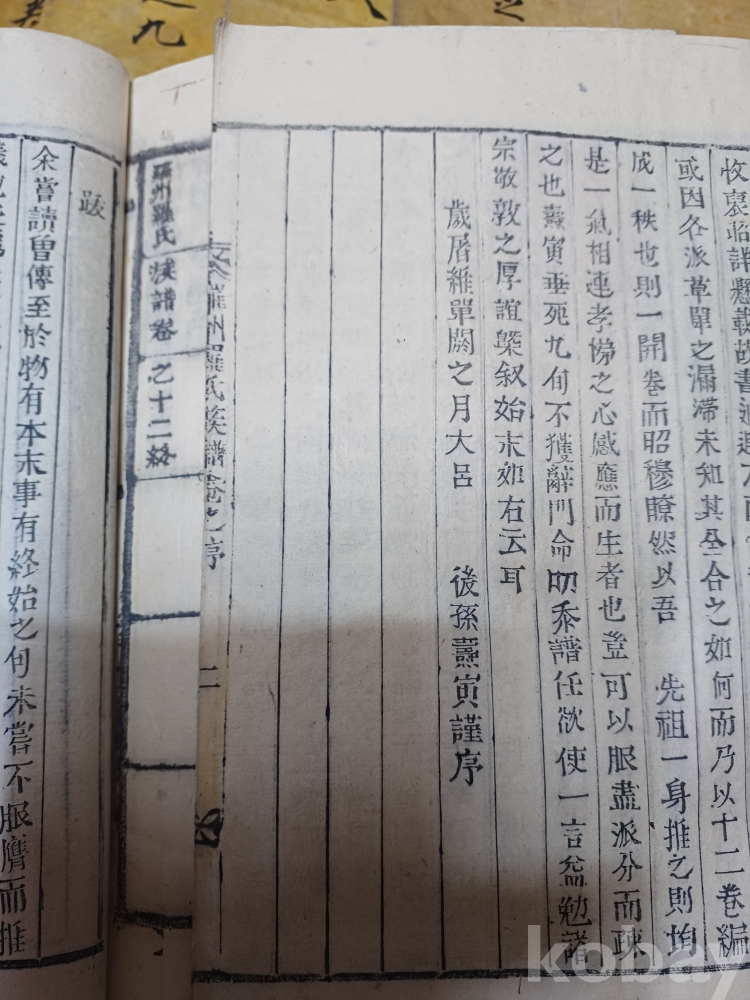 收裒昭詳
或因各派草單之漏滯未知其合之如何而乃以十二卷編
成一秩也則一開卷而昭穆瞭然以吾 先祖一身推之則均
是一氣相連孝悌之心感應而生者也豈可以服盡派分而疎
之也燾寅垂死九旬不獲辭門命忝譜任欲使一言益勉諸
宗敬敦之厚誼槩叙始末如右云耳
歲屠維單閼之月大呂 後孫燾寅謹序
羅州羅氏族譜卷之序
二
羅州羅氏族譜卷之十二終
跋
余嘗讀曾傳至於物有本末事有終始之句未嘗不服膺而推
kobay